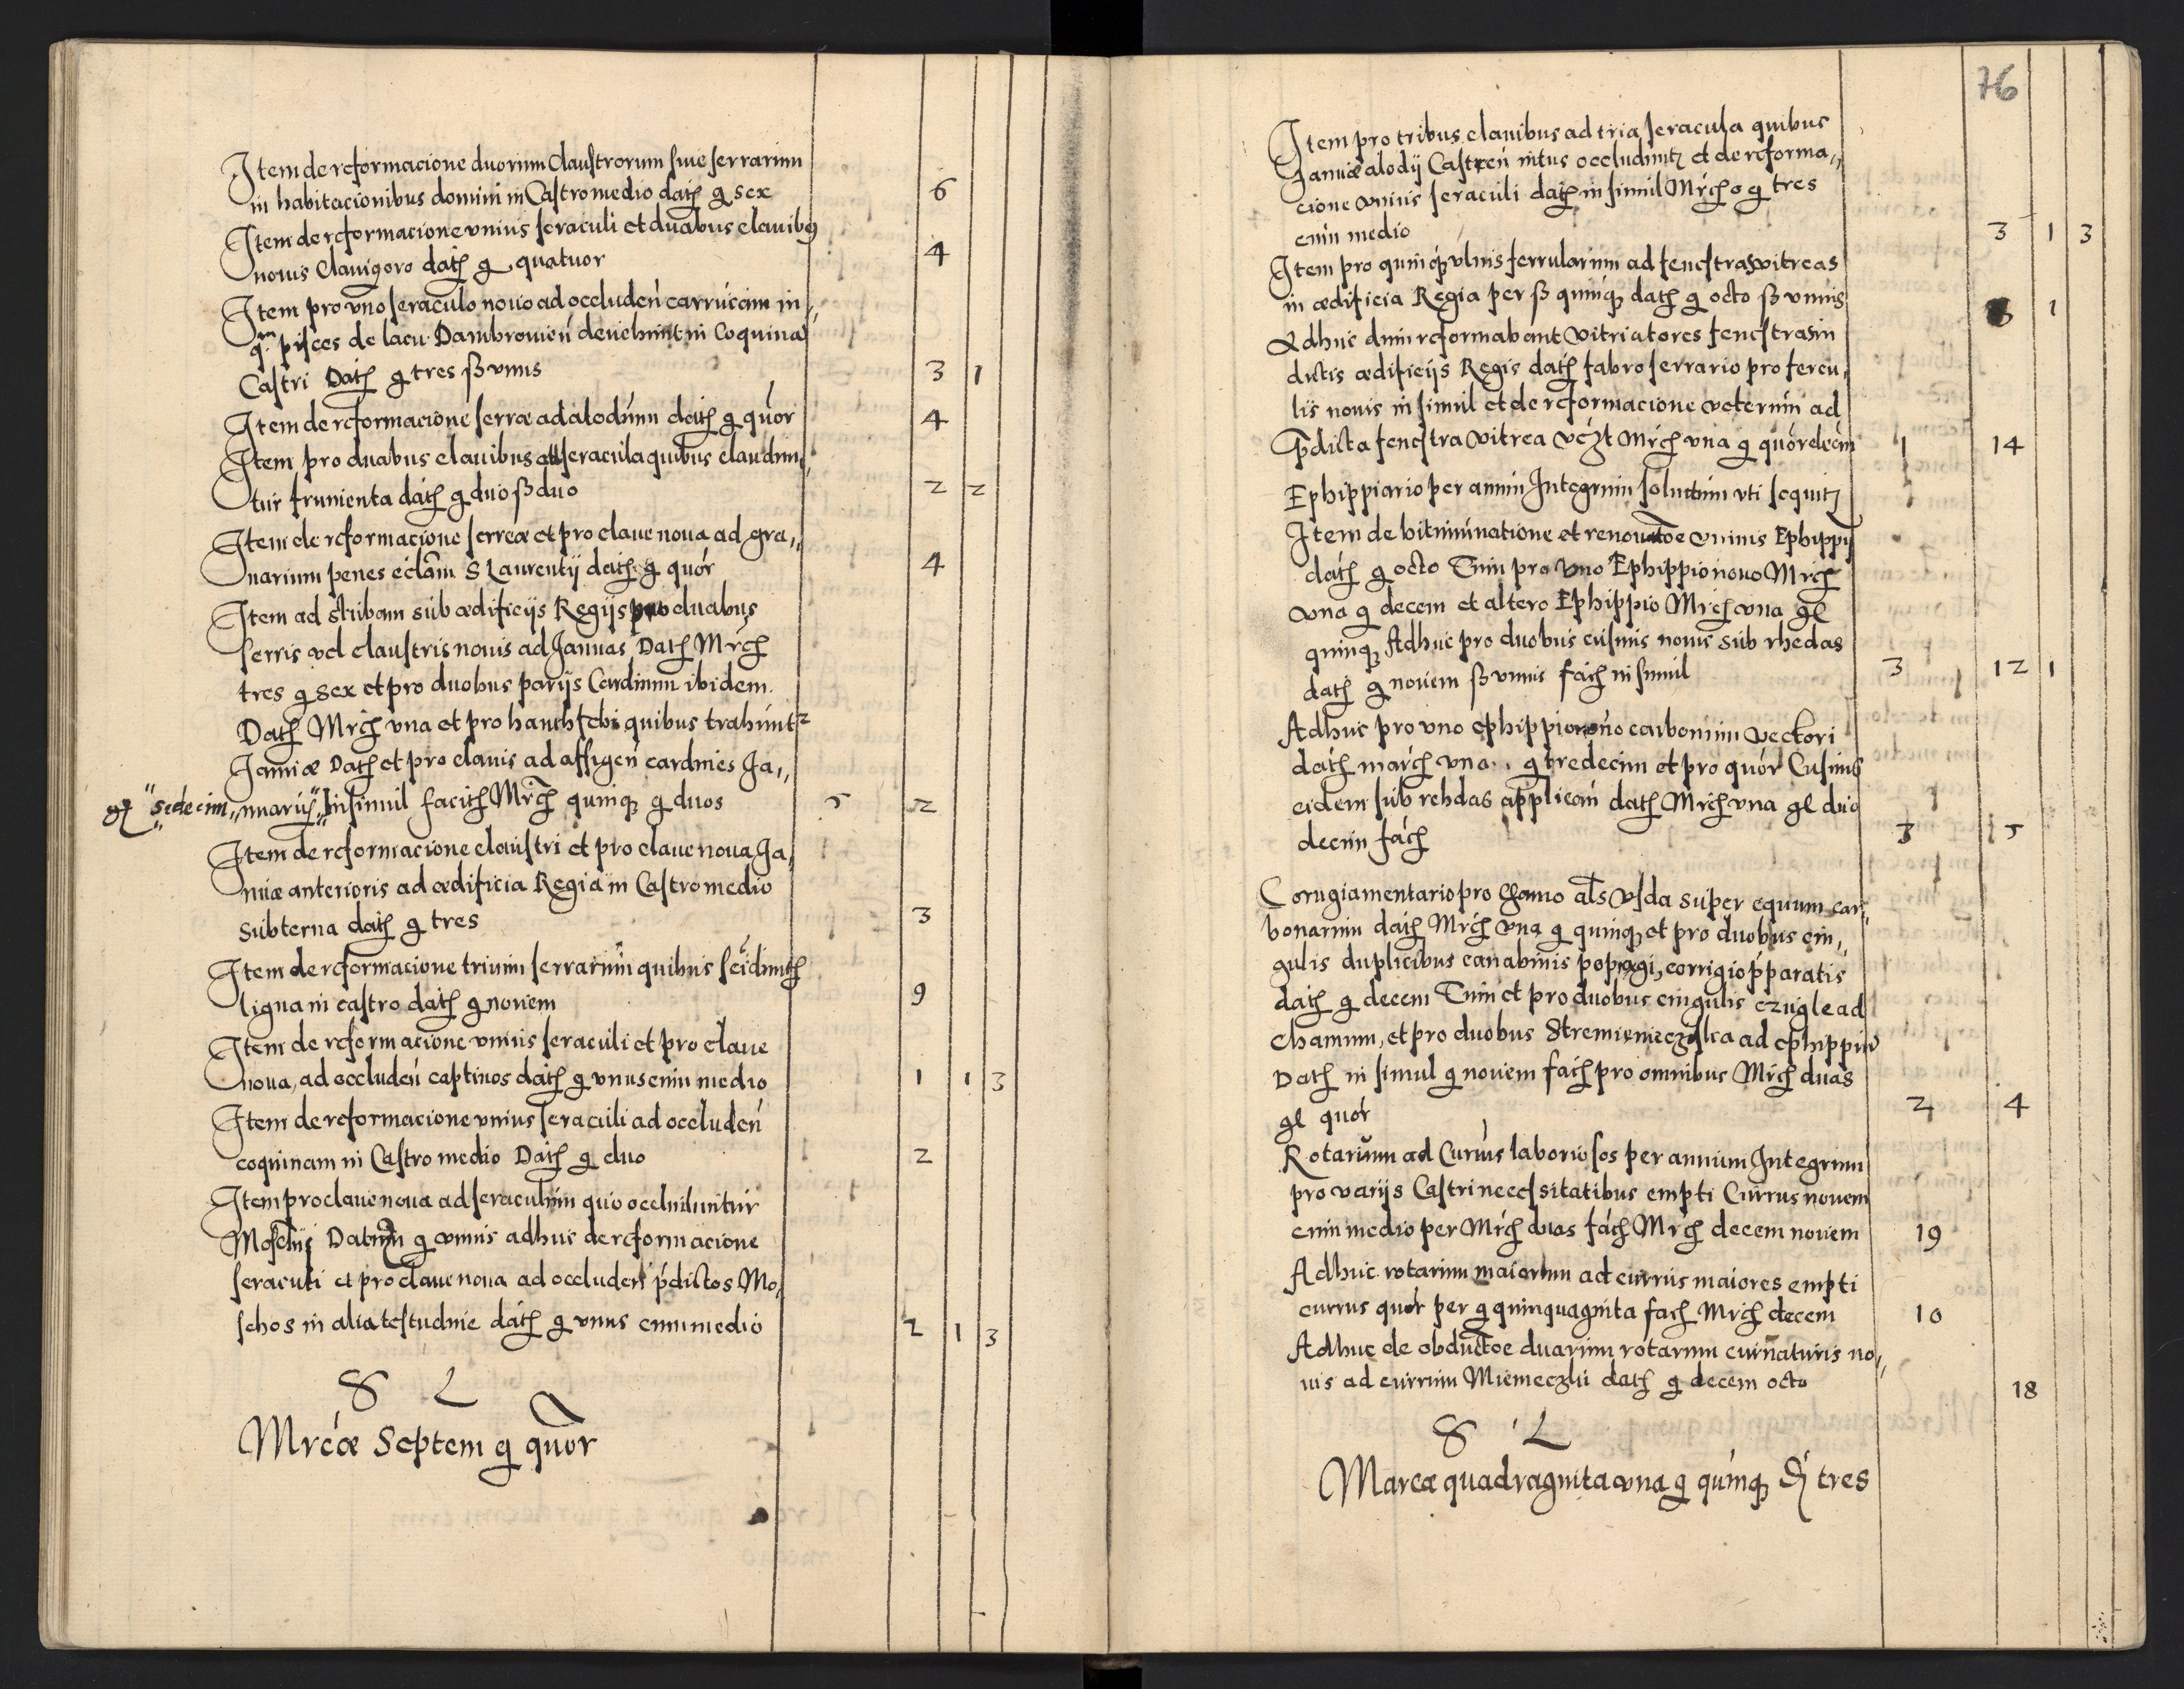 Item de reformacione duorum Claustrorum siue serrarum
in habitacionibus domini in Castro medio dath g sex 6
Item de reformacione vnius seraculi et duabus clauibus
nouis Clauigero dath g quatuor 4
Item pro vno seraculo nouo ad occluden carrucam in
qm pisces de lacu Dambrowien deuehunt in Coquina
Castri Dath g tres ß vnus 3 1
Item de reformacione serræ ad alodium dath g quor 4
Item pro duabus clauibus ad seracula quibus claudun„
tur frumenta dath g duo ß duo 2 2
Item de reformacione serræ et pro claue noua ad gra„
narium penes ecclam S Laurentij dath g quor 4
Item ad stubam sub ædificijs Regijs pro duabus
serris vel claustris nouis ad Januas Dath Mrch
tres g sex et pro duobus parijs Cardinum ibidem
Dath Mrch vna et pro hanthfebi quibus trahunt
Januæ Dath et pro clauis ad affigen cardines Ja„
gl "sedecim„ nuarū„ Insimul facith Mrch quinque g duos 5 2
Item de reformacione claustri et pro claue noua Ja„
nuæ anterioris ad ædificia Regia in Castro medio
Subterna dath g tres 3
Item de reformacione trium serrarum quibus scidunth
ligna in castro dath g nouem 9
Item de reformacione vnius seraculi et pro claue
noua, ad occluden captiuos dath g vnus cum medio 1 1 3
Item de reformacione vnius seraculi ad occluden
coquinam in Castro medio Dath g duo 2
Item pro claue noua ad seraculum quo occluduntur
Moschij Datum g vnus adhuc de reformacione
seraculi et pro claue noua ad occluden pdictos Mo„
schos in alia testudine dath g vnus cum medio 2 1 3
S L
Mrcæ Septem g quor
76
Item pro tribus clauibus ad tria seracula quibus
Januæ alodij Castren intus occluduntz et de reforma„
cione vnius seraculi dath in simul Mrch o g tres
cum medio 3 1 3
Item pro quinqz vlnis ferrularum ad fenestras vitreas
in ædificia Regia per ß quinqz dath g octo ß vnus 8 1
Adhuc dum reformabant Vitriatores fenestras in
dictis ædificijs Regis dath fabro serrario pro fercu„
lis nouis in simul et de reformacione veterum ad
pdicta fenestra vitrea vczt Mrch vna g quordecim 1 14
Ephippiario per annum Integrum solutum vti sequitz
Item de bituminatione et renouatoe vnius Ephippij
dath g octo Tum pro vno Ephippio nouo Mrch
vna g decem et altero Ephippio Mrch vna gl
quinqz Adhuc pro duobus cusinis nouis sub rhedas
dath g nouem ß vnus fach in simul 3 12 1
Adhuc pro vno ephippio nouo carbonum vectori
dath march vna g tredecim et pro quor Cusinis
eidem sub rehdas applican dath Mrch vna gl duo
decim fach 3 5
Corugiamentario pro Chamo als Vsda super equum car„
bonarium dath Mrch vna g quinqz et pro duobus cin„
gulis duplicibus canabinis popragi, corrigio pparatis
dath g decem Tum et pro duobus cingulis czugle ad
chamum, et pro duobus Stremiemieczska ad ephippiu
Dath in simul g nouem fach pro omnibus Mrch duas
gl quor 2 4
Rotarum ad Currus laboriosos per annum Integrum
pro varijs Castri necessitatibus empti Currus nouem
cum medio per Mrch duas fach Mrch decem nouem 19
Adhuc rotarum maiorum ad currus maiores empti
currus quor per g quinquaginta fach Mrch decem 10
Adhuc de obductoe duarum rotarum curuaturis no„
uis ad currum Miemeczki dath g decem octo 18
S L
Marcæ quadraginta vna g quinqz d tres